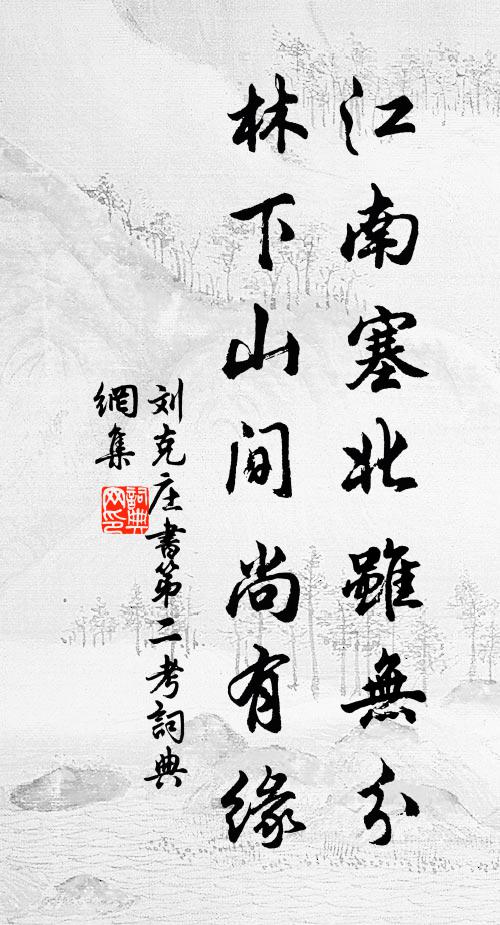 江南塞北雖無分
林下山間尚有緣
刘克庄書第二考詞典
網集
詞典网印